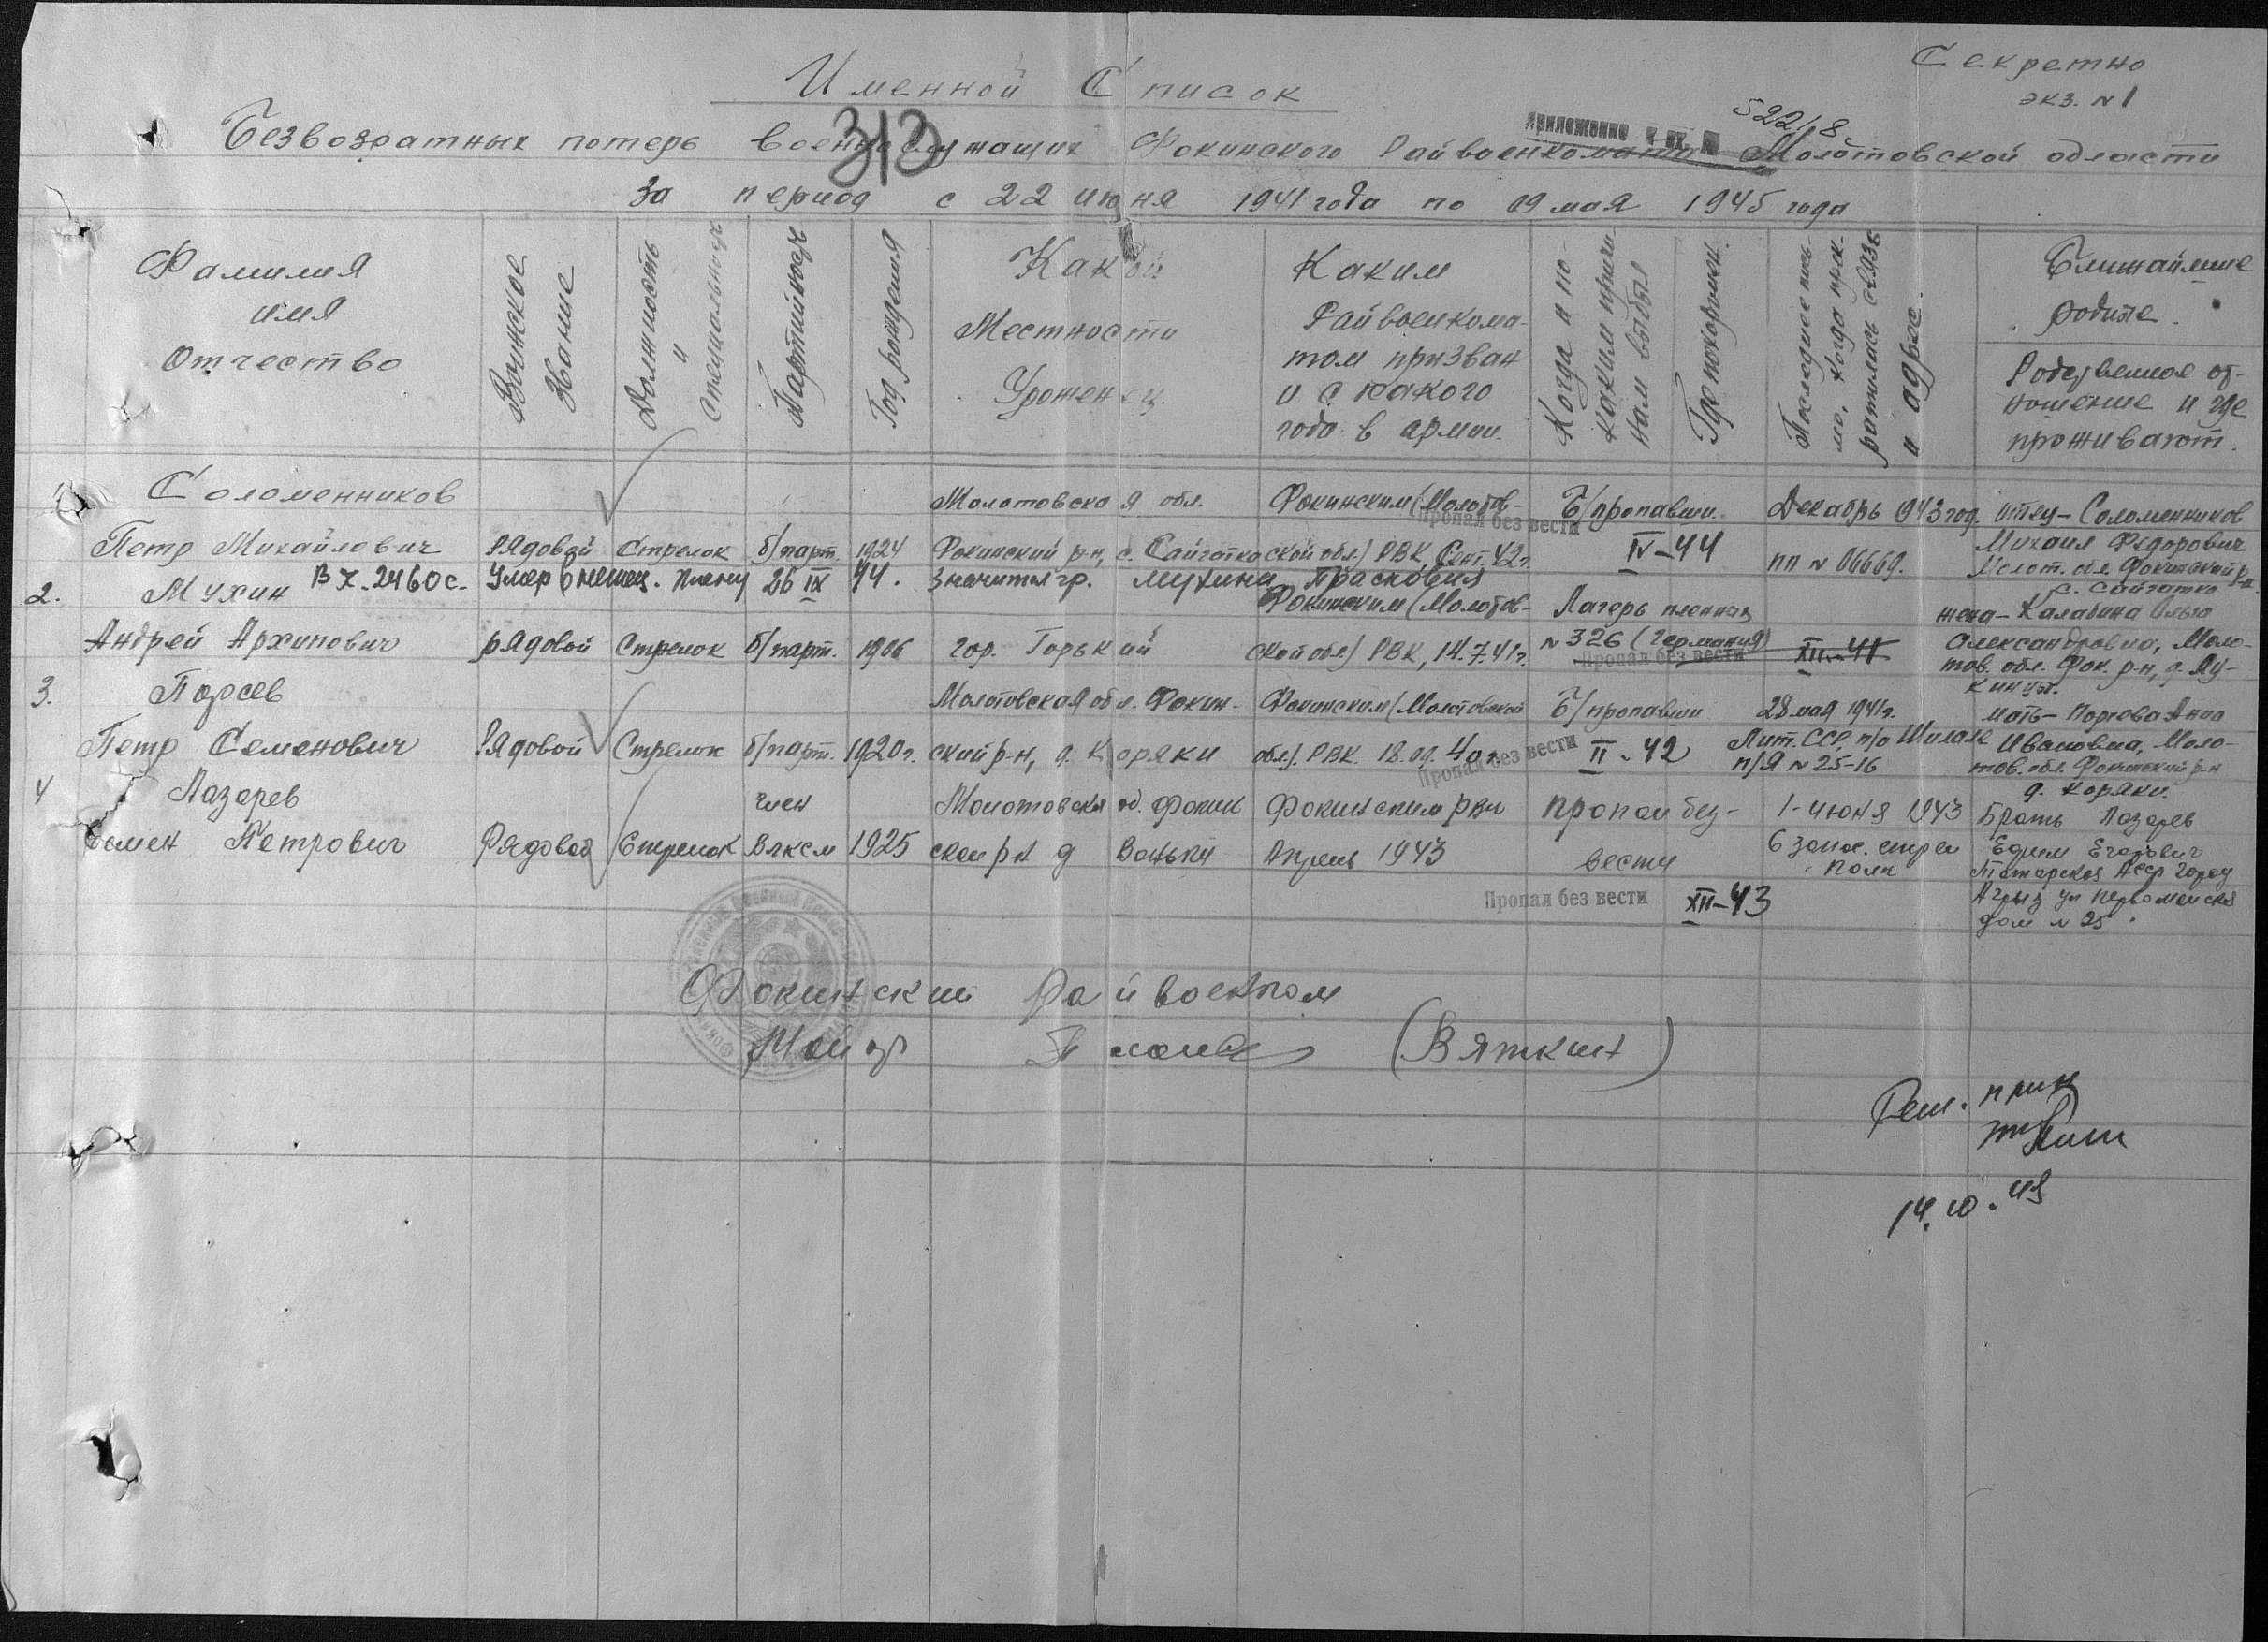 Секретно
экз. №1
Именной Список
313
Приложение к вх №
522/8
Безвозвратных потерь военнослужащих Фокинского Райвоенкомата Молотовской области
за период с 22 июня 1941 года по 09 мая 1945 года
Фамилия
имя
Отчество
Воинское
Звание
Должность
и
специальность
Партийность
Год рождения
Какой
Местности
Уроженец.
Каким
Райвоенкома-
том призван
и с какого
года в армии.
Когда и по
каким причи-
нам выбыл
Где похоронен.
Последнее пись-
мо, когда прек-
ратилась связь
и адрес.
Ближайшие
родите.
Родственное от-
ношение и где
проживают.
Соломенников
Петр Михайлович
Рядовой
Стрелок
б/парт.
1924
Молотовская обл.
Фокинский р-н, с. Сайгатка
Фокинским (Молотов-
ской обл.) РВК, Сент. 42г.
Пропал без вести
Б/пропавши.
IV-44
Декабрь 943 год.
пп № 06669.
отец - Соломенников
Михаил Федорович
Молот. обл. Фокинский р-н
с. Сайгатка
2.
Мухин
Андрей Архипович
Вх. 2460с. Умер в немец. плену 26 IX 44. Значится гр. Мухина Прасковия
рядовой
Стрелок
б/парт.
1906
гор. Горький
Фокинским (Молотов-
ской обл.) РВК, 14.7.41г.
Лагерь пленных
№ 326 (Германия)
Пропал без вести
XII-41
жена - Калабина Ольга
Александровна, Моло-
тов. обл. Фок. р-н, д. Лу-
кинцы.
3.
Порсев
Петр Семенович
Рядовой
Стрелок
б/парт.
1920г.
Молотовская обл. Фокин-
ский р-н, д. Коряки
Фокинским (Молотовской
обл.). РВК. 18.09.40г.
Пропал без вести
Б/пропавши
II-42
28 мая 1941г.
Лит. ССР, п/о Шилале
п/я № 25-16
мать - Порсева Анна
Ивановна, Моло-
тов. обл. Фокинский р-н
д. Коряки.
4
Лазарев
Семен Петрович
Рядовой
Стрелок
член
Влксм
1925
Молотовская об. Фокин
ский рн д Ваньки
Фокинским рвк
Апрель 1943
Пропал без-
вести
Пропал без вести
XII-43
1-июня 1943
6 запас. стрел
полк
Брать Лазарев
Ефим Егорович
Татарская Асср город
Агрыз ул первомайская
дом № 25.
Фокинский Райвоенком
Майор
(Вяткин)
14.10.48